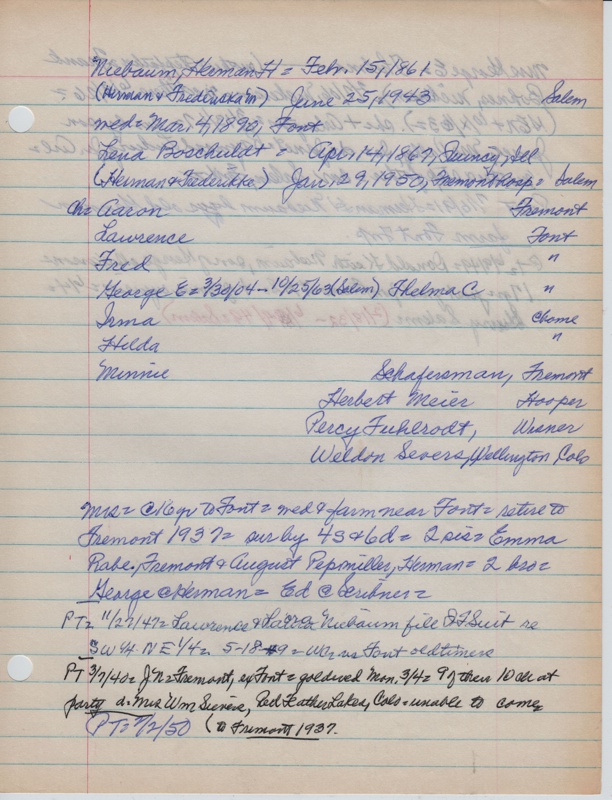 Niebaum, Herman H = Febr. 15, 1861
(Herman & Fredericka m) June 25, 1943 Salem
wed = Mar 4, 1890, Font
Lena Boschuldt = Apr. 14, 1867, Quincy, Ill
(Herman & Federikke) Jan. 29, 1950, Fremont hosp = Salem
Ch = Aaron Fremont
Lawrence Font
Fred "
George E = 3/30/04 - 10/25/63 (Salem) Thelma C "
Irma @home
Hilda "
Minnie Schafersman, Fremont
Herbert Meier Hooper
Percy Fuhlrodt, Wisner
Weldon Severs, Wellington Colo
Mrs = @16 yr to Font = wed & farm near Font = retire to
Fremont 1937 = sur by 4s & 6d = 2 sis = Emma
Rabe, Fremont & August Pepmiller, Herman = 2 bro =
George @ Herman = Ed @ Scribner =
PT = 11/27/47 = Lawrence & Niebaum file suit re
SW 1/4 NE 1/4 = 5-18-49 = Font oldtimers
PT 3/7/40 = Fremont, ex Font = gold wed Mon. 3/4 = 9 of their 10 ch at
party d = Mrs Wm Sievers, Red Feather Lakes, Colo = unable to come
PT = 7/2/50 (to Fremont 1937.